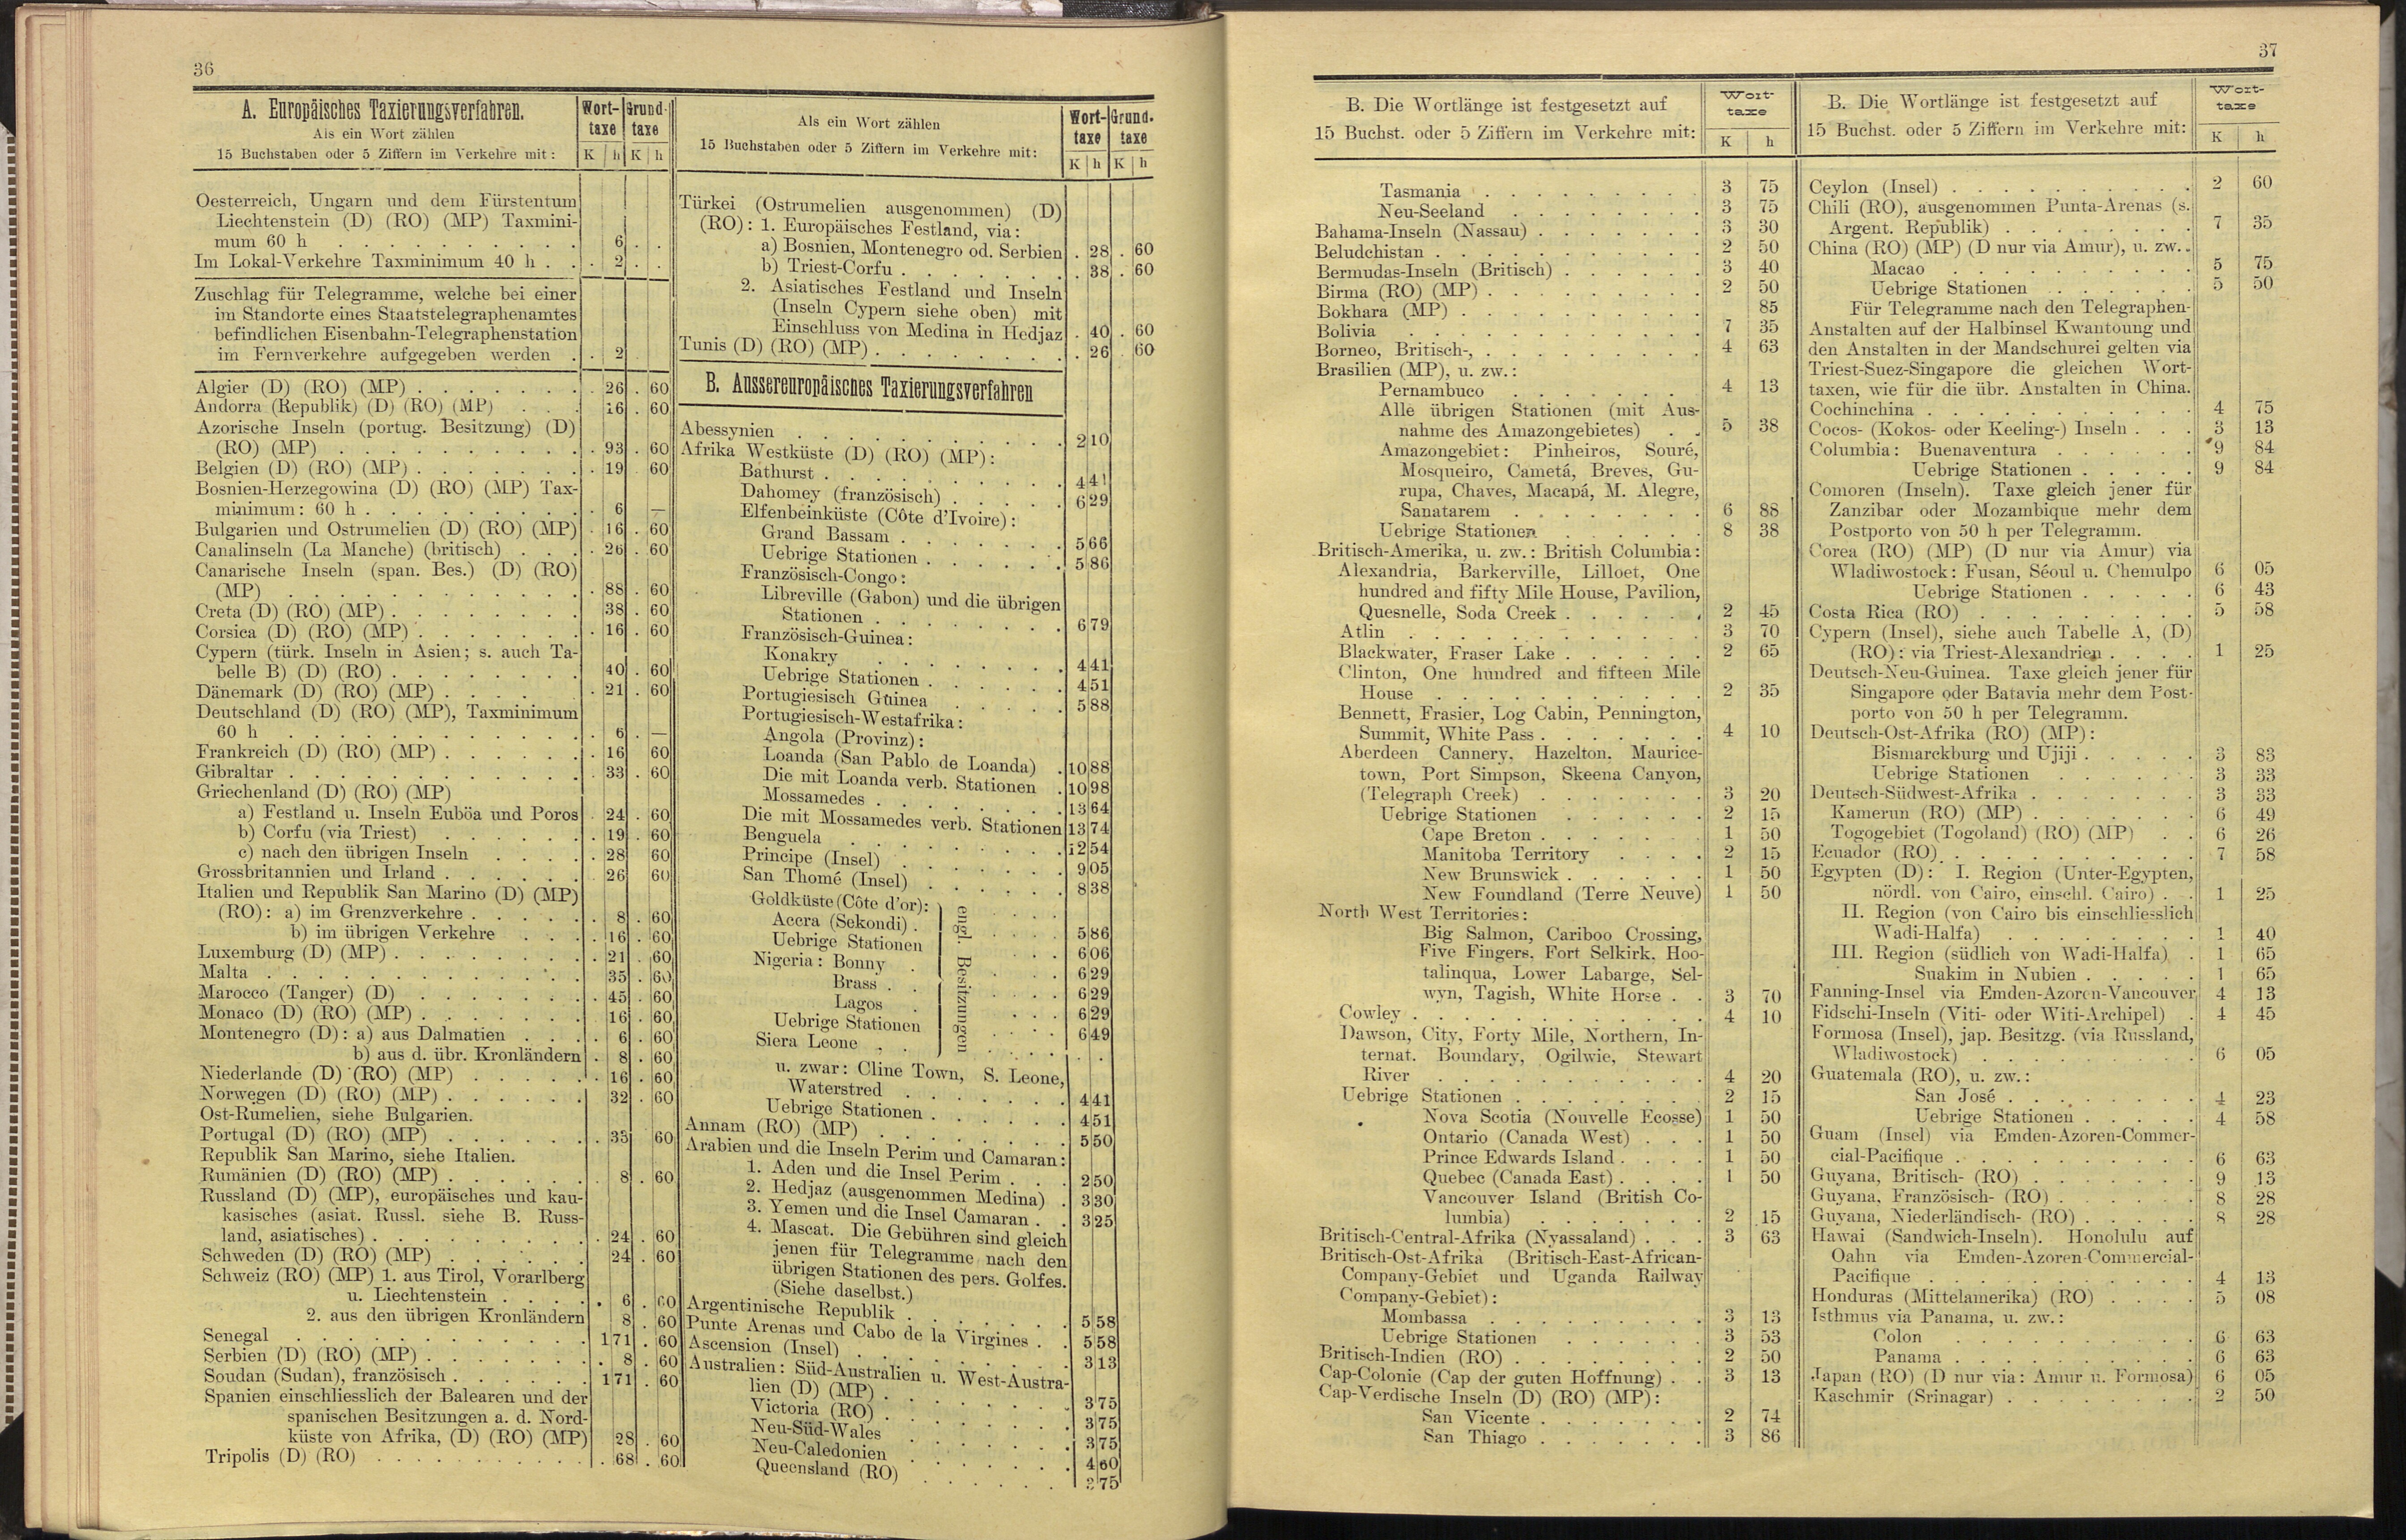 36
A. Europäisches Taxierungsverfahren.
Als ein Wort zählen
15 Buchstaben oder 5 Ziffern im Verkehre mit:
Wort-taxe Grund-taxe
K h K h
Oesterreich, Ungarn und dem Fürstentum
Liechtenstein (D) (RO) (MP) Taxmini-
mum 60 h . 6 . .
Im Lokal-Verkehre Taxminimum 40 h . . 2 . .
Zuschlag für Telegramme, welche bei einer
im Standorte eines Staatstelegraphenamtes
befindlichen Eisenbahn-Telegraphenstation
im Fernverkehre aufgegeben werden . . 2
Algier (D) (RO) (MP) . 26 . 60
Andorra (Republik) (D) (RO) (MP) 16 . 60
Azorische Inseln (portug. Besitzung) (D)
(RO) (MP) . 93 . 60
Belgien (D) (RO) (MP) . 19 . 60
Bosnien-Herzegowina (D) (RO) (MP) Tax-
minimum: 60 h . 6 —
Bulgarien und Ostrumelien (D) (RO) (MP) . 16 . 60
Canalinseln (La Manche) (britisch) . 26 . 60
Canarische Inseln (span. Bes.) (D) (RO)
(MP) . 88 . 60
Creta (D) (RO) (MP) 38 . 60
Corsica (D) (RO) (MP) . 16 . 60
Cypern (türk. Inseln in Asien; s. auch Ta-
belle B) (D) (RO) 40 . 60
Dänemark (D) (RO) (MP) . 21 . 60
Deutschland (D) (RO) (MP), Taxminimum
60 h . 6 . —
Frankreich (D) (RO) (MP) . 16 60
Gibraltar . 33 . 60
Griechenland (D) (RO) (MP)
a) Festland u. Inseln Euböa und Poros . 24 . 60
b) Corfu (via Triest) . 19 . 60
c) nach den übrigen Inseln . 28 60
Grossbritannien und Irland . 26 60
Italien und Republik San Marino (D) (MP)
(RO): a) im Grenzverkehre . 8 . 60
b) im übrigen Verkehre . 16 . 60
Luxemburg (D) (MP) . 21 . 60
Malta . 35 . 60
Marocco (Tanger) (D) . 45 . 60
Monaco (D) (RO) (MP) . 16 . 60
Montenegro (D): a) aus Dalmatien . 6 . 60
b) aus d. übr. Kronländern . 8 . 60
Niederlande (D) (RO) (MP) . 16 . 60
Norwegen (D) (RO) (MP) . 32 . 60
Ost-Rumelien, siehe Bulgarien.
Portugal (D) (RO) (MP) . 33 60
Republik San Marino, siehe Italien.
Rumänien (D) (RO) (MP) . 8 . 60
Russland (D) (MP), europäisches und kau-
kasisches (asiat. Russl. siehe B. Russ-
land, asiatisches) . 24 . 60
Schweden (D) (RO) (MP) 24 . 60
Schweiz (RO) (MP) 1. aus Tirol, Vorarlberg
u. Liechtenstein . 6 . 60
2. aus den übrigen Kronländern 8 . 60
Senegal 1 71 . 60
Serbien (D) (RO) (MP) . 8 . 60
Soudan (Sudan), französisch 1 71 . 60
Spanien einschliesslich der Balearen und der
spanischen Besitzungen a. d. Nord-
küste von Afrika, (D) (RO) (MP) 28 . 60
Tripolis (D) (RO) . 68 . 60
Als ein Wort zählen
15 Buchstaben oder 5 Ziffern im Verkehre mit:
Wort-taxe Grund-taxe
K h K h
Türkei (Ostrumelien ausgenommen) (D)
(RO): 1. Europäisches Festland, via:
a) Bosnien, Montenegro od. Serbien . 28 . 60
b) Triest-Corfu . 38 . 60
2. Asiatisches Festland und Inseln
(Inseln Cypern siehe oben) mit
Einschluss von Medina in Hedjaz . 40 . 60
Tunis (D) (RO) (MP) . 26 60
B. Aussereuropäisches Taxierungsverfahren
Abessynien 2 10
Afrika Westküste (D) (RO) (MP):
Bathurst 4 41
Dahomey (französisch) 6 29
Elfenbeinküste (Côte d'Ivoire):
Grand Bassam 5 66
Uebrige Stationen 5 86
Französisch-Congo:
Libreville (Gabon) und die übrigen
Stationen 6 79
Französisch-Guinea:
Konakry 4 41
Uebrige Stationen 4 51
Portugiesisch Guinea 5 88
Portugiesisch-Westafrika:
Angola (Provinz):
Loanda (San Pablo de Loanda) 10 88
Die mit Loanda verb. Stationen 10 98
Mossamedes 13 64
Die mit Mossamedes verb. Stationen 13 74
Benguela 12 54
Principe (Insel) 9 05
San Thomé (Insel) 8 38
Goldküste (Côte d'or):
Accra (Sekondi) 5 86
Uebrige Stationen 6 06
Nigeria: Bonny 6 29
Brass 6 29
Lagos 6 29
Uebrige Stationen 6 49
Siera Leone
engl. Besitzungen
u. zwar: Cline Town, S. Leone,
Waterstred 4 41
Uebrige Stationen 4 51
Annam (RO) (MP) 5 50
Arabien und die Inseln Perim und Camaran:
1. Aden und die Insel Perim 2 50
2. Hedjaz (ausgenommen Medina) 3 30
3. Yemen und die Insel Camaran 3 25
4. Mascat. Die Gebühren sind gleich
jenen für Telegramme nach den
übrigen Stationen des pers. Golfes.
(Siehe daselbst.)
Argentinische Republik 5 58
Punte Arenas und Cabo de la Virgines 5 58
Ascension (Insel) 3 13
Australien: Süd-Australien u. West-Austra-
lien (D) (MP) 3 75
Victoria (RO) 3 75
Neu-Süd-Wales 3 75
Neu-Caledonien 4 60
Queensland (RO) 3 75
37
B. Die Wortlänge ist festgesetzt auf
15 Buchst. oder 5 Ziffern im Verkehre mit:
Wort-taxe
K h
Tasmania 3 75
Neu-Seeland 3 75
Bahama-Inseln (Nassau) 3 30
Beludchistan 2 50
Bermudas-Inseln (Britisch) 3 40
Birma (RO) (MP) 2 50
Bokhara (MP) 85
Bolivia 7 35
Borneo, Britisch-, 4 63
Brasilien (MP), u. zw.:
Pernambuco 4 13
Alle übrigen Stationen (mit Aus-
nahme des Amazongebietes) 5 38
Amazongebiet: Pinheiros, Souré,
Mosqueiro, Cametá, Breves, Gu-
rupa, Chaves, Macapá, M. Alegre,
Sanatarem 6 88
Uebrige Stationen 8 38
Britisch-Amerika, u. zw.: British Columbia:
Alexandria, Barkerville, Lilloet, One
hundred and fifty Mile House, Pavilion,
Quesnelle, Soda Creek 2 45
Atlin 3 70
Blackwater, Fraser Lake 2 65
Clinton, One hundred and fifteen Mile
House 2 35
Bennett, Frasier, Log Cabin, Pennington,
Summit, White Pass 4 10
Aberdeen Cannery, Hazelton, Maurice-
town, Port Simpson, Skeena Canyon,
(Telegraph Creek) 3 20
Uebrige Stationen 2 15
Cape Breton 1 50
Manitoba Territory 2 15
New Brunswick 1 50
New Foundland (Terre Neuve) 1 50
North West Territories:
Big Salmon, Cariboo Crossing,
Five Fingers, Fort Selkirk, Hoo-
talinqua, Lower Labarge, Sel-
wyn, Tagish, White Horse 3 70
Cowley 4 10
Dawson, City, Forty Mile, Northern, In-
ternat. Boundary, Ogilwie, Stewart
River 4 20
Uebrige Stationen 2 15
Nova Scotia (Nouvelle Ecosse) 1 50
Ontario (Canada West) 1 50
Prince Edwards Island 1 50
Quebec (Canada East) 1 50
Vancouver Island (British Co-
lumbia) 2 15
Britisch-Central-Afrika (Nyassaland) 3 63
Britisch-Ost-Afrika (Britisch-East-African-
Company-Gebiet und Uganda Railway
Company-Gebiet):
Mombassa 3 13
Uebrige Stationen 3 53
Britisch-Indien (RO) 2 50
Cap-Colonie (Cap der guten Hoffnung) 3 13
Cap-Verdische Inseln (D) (RO) (MP):
San Vicente 2 74
San Thiago 3 86
B. Die Wortlänge ist festgesetzt auf
15 Buchst. oder 5 Ziffern im Verkehre mit:
Wort-taxe
K h
Ceylon (Insel) 2 60
Chili (RO), ausgenommen Punta-Arenas (s.
Argent. Republik) 7 35
China (RO) (MP) (D nur via Amur), u. zw.
Macao 5 75
Uebrige Stationen 5 50
Für Telegramme nach den Telegraphen-
Anstalten auf der Halbinsel Kwantoung und
den Anstalten in der Mandschurei gelten via
Triest-Suez-Singapore die gleichen Wort-
taxen, wie für die übr. Anstalten in China.
Cochinchina 4 75
Cocos- (Kokos- oder Keeling-) Inseln 3 13
Columbia: Buenaventura 9 84
Uebrige Stationen 9 84
Comoren (Inseln). Taxe gleich jener für
Zanzibar oder Mozambique mehr dem
Postporto von 50 h per Telegramm.
Corea (RO) (MP) (D nur via Amur) via
Wladiwostock: Fusan, Séoul u. Chemulpo 6 05
Uebrige Stationen 6 43
Costa Rica (RO) 5 58
Cypern (Insel), siehe auch Tabelle A, (D)
(RO): via Triest-Alexandrien 1 25
Deutsch-Neu-Guinea. Taxe gleich jener für
Singapore oder Batavia mehr dem Post-
porto von 50 h per Telegramm.
Deutsch-Ost-Afrika (RO) (MP):
Bismarckburg und Ujiji 3 83
Uebrige Stationen 3 33
Deutsch-Südwest-Afrika 3 33
Kamerun (RO) (MP) 6 49
Togogebiet (Togoland) (RO) (MP) 6 26
Ecuador (RO) 7 58
Egypten (D): I. Region (Unter-Egypten,
nördl. von Cairo, einschl. Cairo) 1 25
II. Region (von Cairo bis einschliesslich
Wadi-Halfa) 1 40
III. Region (südlich von Wadi-Halfa) 1 65
Suakim in Nubien 1 65
Fanning-Insel via Emden-Azoren-Vancouver 4 13
Fidschi-Inseln (Viti- oder Witi-Archipel) 4 45
Formosa (Insel), jap. Besitzg. (via Russland,
Wladiwostock) 6 05
Guatemala (RO), u. zw.:
San José 4 23
Uebrige Stationen 4 58
Guam (Insel) via Emden-Azoren-Commer-
cial-Pacifique 6 63
Guyana, Britisch- (RO) 9 13
Guyana, Französisch- (RO) 8 28
Guyana, Niederländisch- (RO) 8 28
Hawai (Sandwich-Inseln). Honolulu auf
Oahn via Emden-Azoren-Commercial-
Pacifique 4 13
Honduras (Mittelamerika) (RO) 5 08
Isthmus via Panama, u. zw.:
Colon 6 63
Panama 6 63
Japan (RO) (D nur via: Amur u. Formosa) 6 05
Kaschmir (Srinagar) 2 50